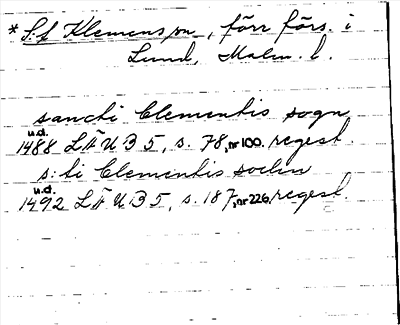 * S:t Klemens sn, förr förs. i
Lund, Malm. l.
sancti Clementis sogn
u.d.
1488 LÄUB 5, s. 78, nr 100. regest.
s:ti Clementis sochn
u.d.
1492 LÄUB 5, s. 187, nr 226, regest.